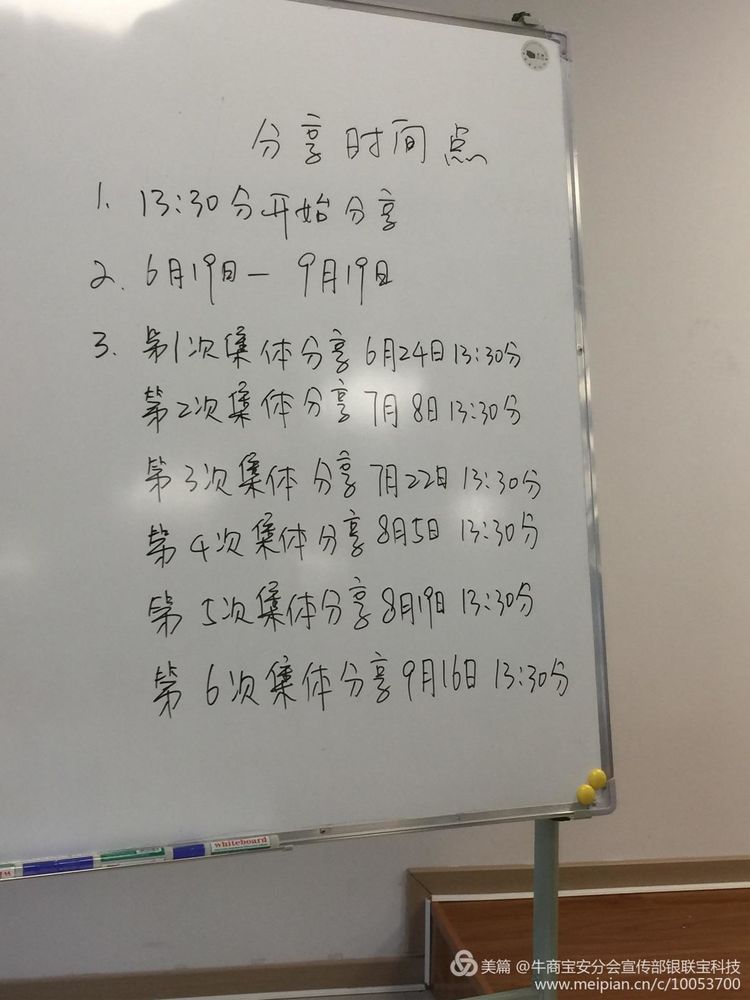 分享时间点
1. 13:30分开始分享
2. 6月19日一 9月19日
3. 第1次集体分享 6月24日 13:30分
第2次集体分享 7月 8日 13:30分
第3次集体分享 7月22日 13:30分
第4次集体分享 8月5日 13:30分
第5次集体分享 8月19日 13:30分
第6次集体分享 9月16日 13:30分
whiteboard
美篇 @牛商宝安分会宣传部银联宝科技
www.meipian.cn/c/10053700